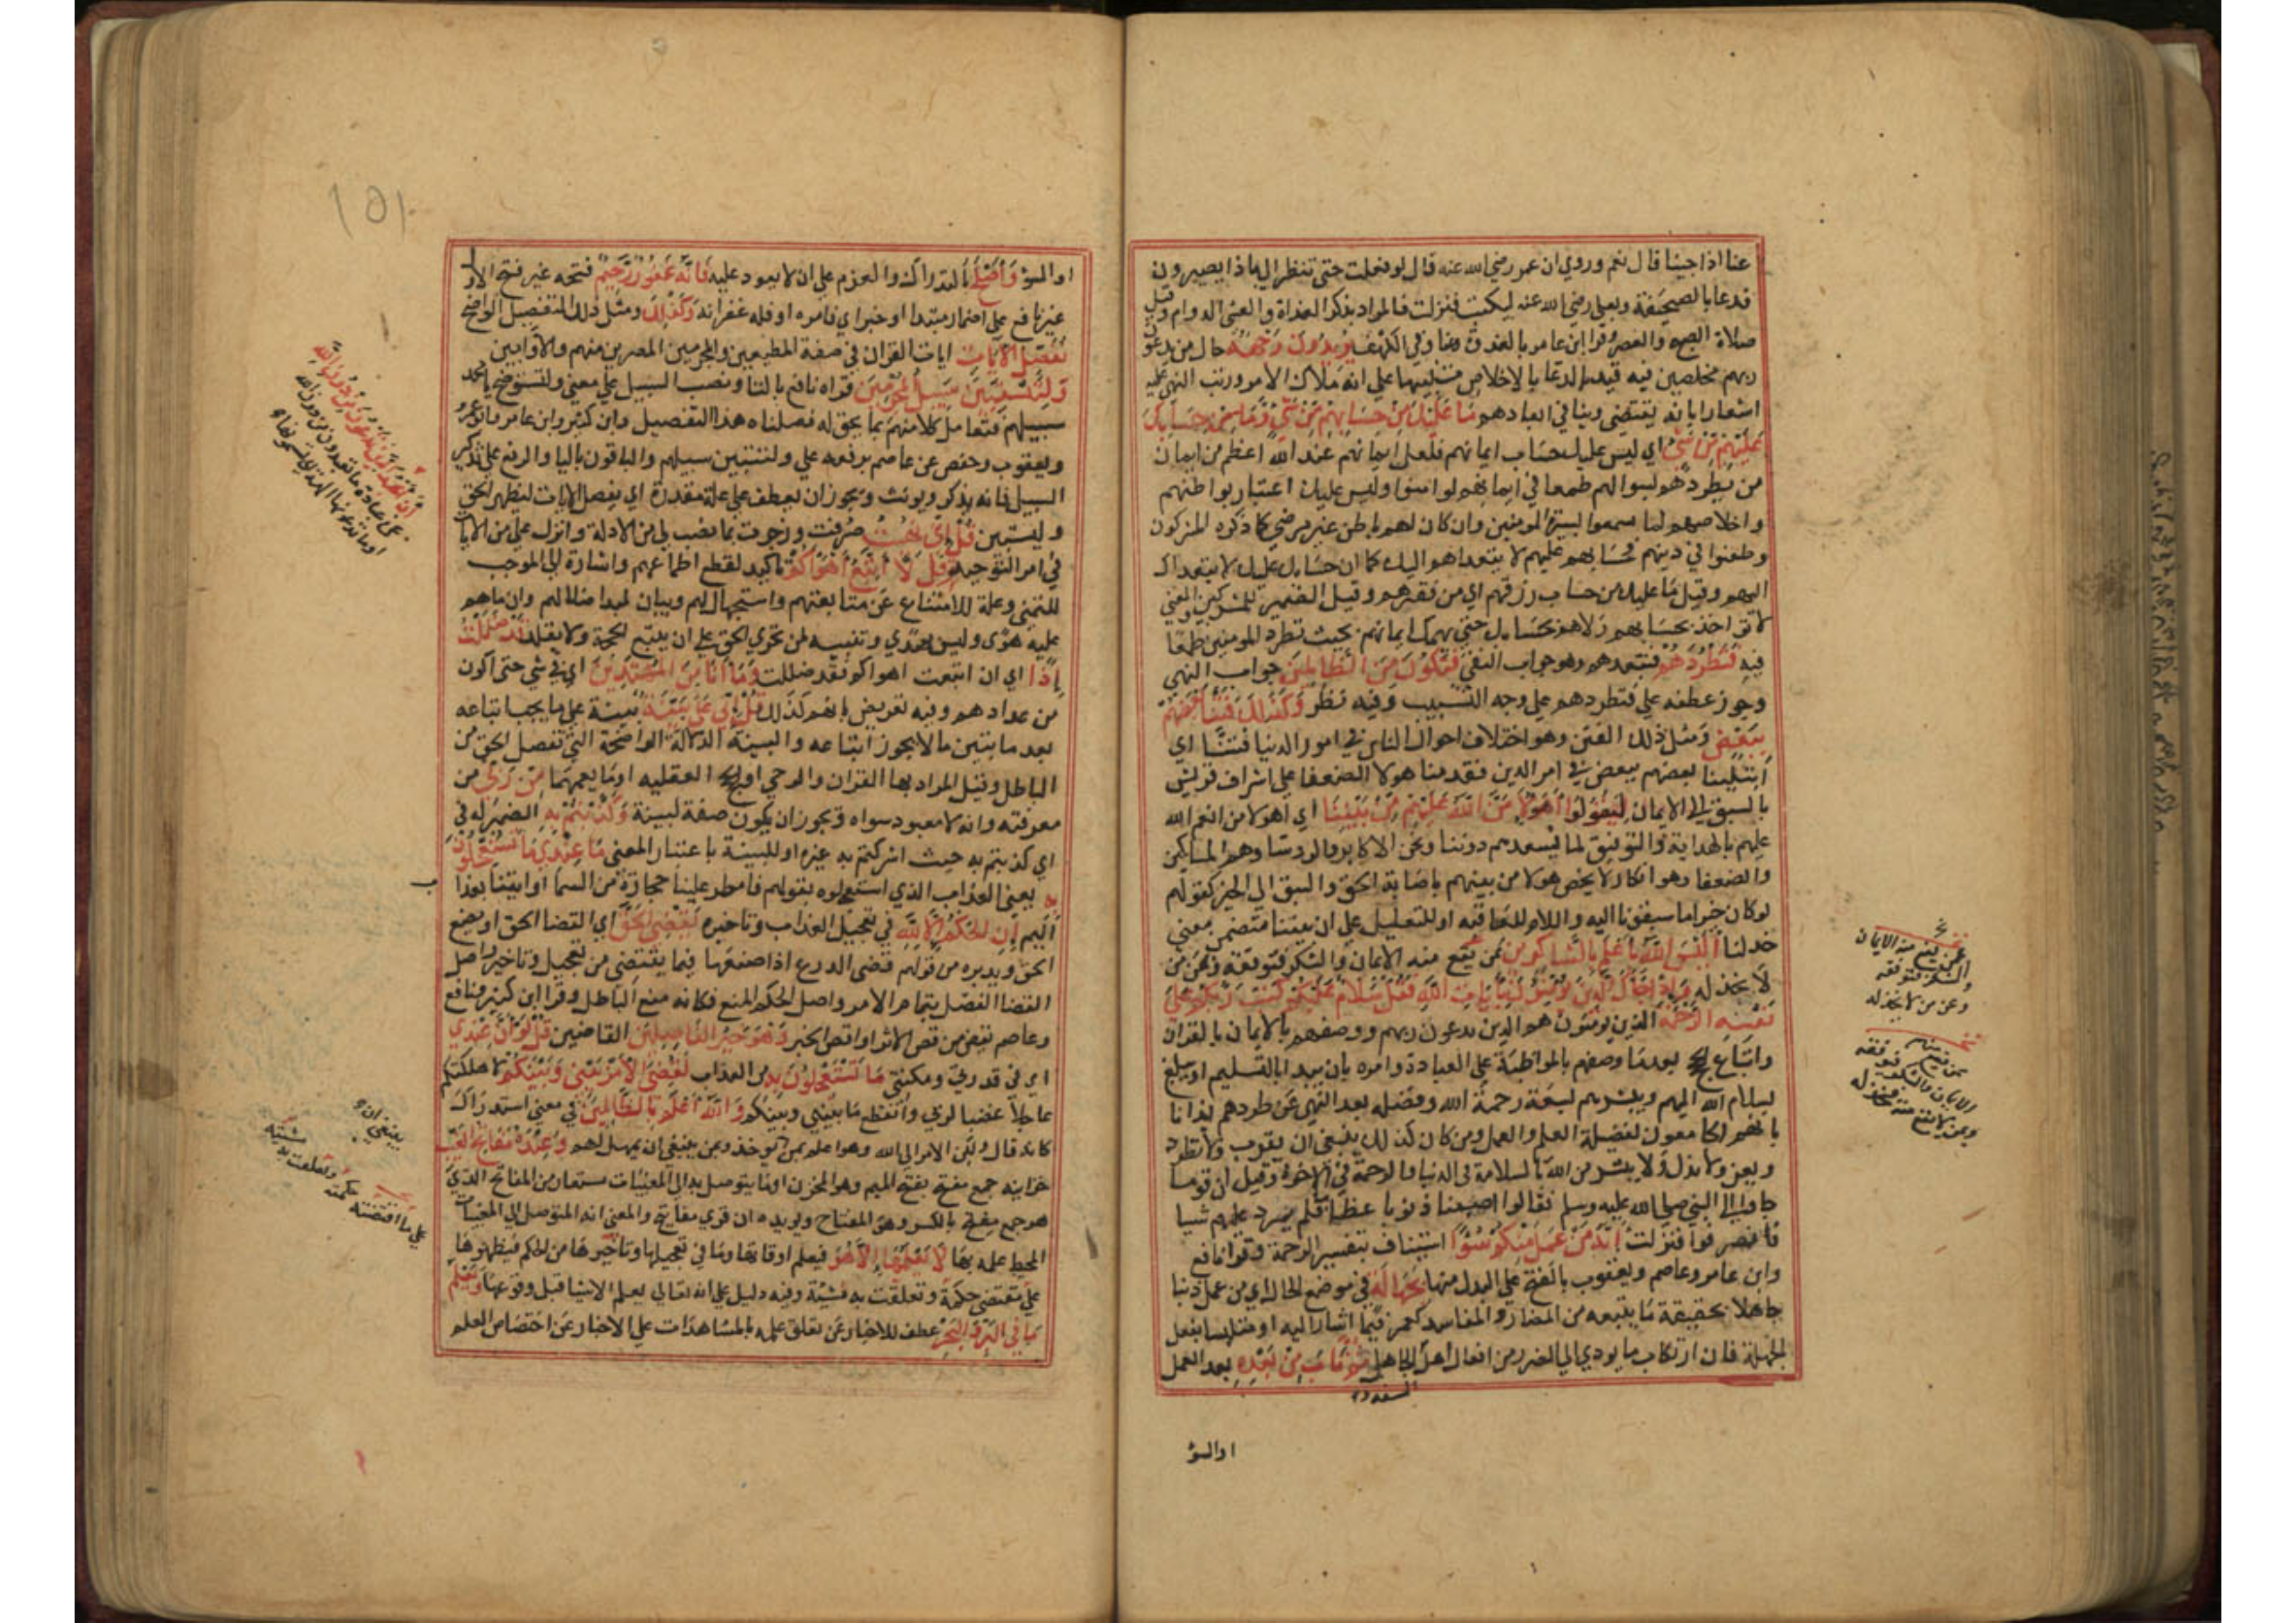 عنا اذا جينا قال نعم وروي ان عمر رضي الله عنه قال لو فعلت حتى تنظر الى ماذا يصيرون
فدعا بالصحيفة وبعلي رضي الله عنه ليكتب فنزلت فالمراد بذكر الغداة والعشي الدوام وقيل
صلاة الصبح والعصر وقرا ابن عامر بالغدوة هنا وفي الكهف يريدون وجهه حال من يدعون
ربهم مخلصين فيه قيد الدعا بالاخلاص تنبيها على انه ملاك الامر ورتب النهي عليه
اشعارا بانه يقتضي وينافي ابعادهم ما عليك من حسابهم من شي وما من حسابك
عليهم من شي اي ليس عليك حساب ايمانهم فلعل ايمانهم عند الله اعظم من ايمان
من بطردهم لسوالهم طمعا في ايمانهم لو امنوا وليس عليك اعتبار بواطنهم
واخلاصهم لما بسيرة المومنين وان كان لهم باطن غير مرضي كما ذكره المشركون
وطعنوا في دينهم فحسابهم عليهم لا يتعداهم اليك كما ان حسابك عليك لا يتعداك
اليهم وقيل ما عليك من حساب رزقهم اي من فقرهم وقيل الضمير للمشركين والمعنى
لا تواخذ بحسابهم ولا هم بحسابك حتى يهمك ايمانهم بحيث تطرد المومنين طمعا
فيه فتطردهم فتبعدهم وهو جواب النفي فتكون من الظالمين جواب النهي
وجوز عطفه على فتطردهم على وجه التسبيب وفيه نظر وكذلك فتنا بعضهم
ببعض ومثل ذلك الفتن وهو اختلاف احوال الناس في امور الدنيا فتنا اي
ابتلينا بعضهم ببعض في امر الدين فقدمنا هولا الضعفا على اشراف قريش
بالسبق الى الايمان ليقولوا اهولا من الله عليهم من بيننا اي اهولا من انعم الله
عليهم بالهداية والتوفيق لما يسعدهم دوننا ونحن الاكابر والروسا وهم المساكين
والضعفا وهو انكار لان يخص هولا من بينهم باصابة الحق والسبق الى الخير كقولهم
لو كان خيرا ما سبقونا اليه واللام للعاقبة او للتعليل على ان فتنا متضمن معنى
خذلنا اليس الله باعلم بالشاكرين بمن يقع منه الايمان والشكر فتوفقه وبمن
لا يخذله واذا جاك الذين يومنون باياتنا فقل سلام عليكم كتب ربكم على
نفسه الرحمة الذين يومنون هم الذين يدعون ربهم ووصفهم بالايمان بالقران
واتباع بعد ما وصفهم بالمواظبة على العبادة وامره بان يبدا بالتسليم او يبلغ
سلام الله اليهم ويبشرهم بسعة رحمة الله وفضله بعد النهي عن طردهم ايذانا
بانهم الجامعون لفضيلة العلم والعمل ومن كان كذلك ينبغي ان يقرب ولا يطرد
ويعز ولا يذل ويبشر من الله بالسلامة في الدنيا والرحمة في الاخرة وقيل ان قوما
جاوا الى النبي صلى الله عليه وسلم فقالوا اصبنا ذنوبا عظاما فلم يرد عليهم شيا
فانصرفوا فنزلت انه من عمل منكم سوا استيناف بتفسير الرحمة وقرا نافع
وابن عامر وعاصم ويعقوب بالفتح على البدل منها بجهالة في موضع الحال اي من عمل ذنبا
جاهلا بحقيقة ما يتبعه من المضار والمفاسد كعمر فيما اشار اليه او متلبسا بفعل
الجهالة فان ارتكاب ما يودي الى الضرر من افعال اهل الجاهل ثم تاب من بعده بعد العمل
او السؤ
او السؤ واصلح بالتدارك والعزم على ان لا يعود عليه فانه غفور رحيم فتحه من فتح الاول
غير نافع على اضمار مبتدا او خبر اي فامره او فله غفرانه وكذلك ومثل ذلك التفصيل الواضح
نفصل الايات ايات القران في صفة المطيعين والمجرمين المصرين منهم والاوابين
ولتستبين سبيل المجرمين قراه نافع بالتا ونصب السبيل على معنى ولتستوضح يا محمد
سبيلهم فتعامل كلا منهم بما يحق له فصلنا هذا التفصيل وابن كثير وابن عامر وابو عمرو
ويعقوب وحفص عن عاصم برفعه على ولتتبين سبيلهم والباقون باليا والرفع على تذكير
السبيل فانه يذكر ويونث ويجوز ان يعطف على علة مقدرة اي نفصل الايات ليظهر الحق
وليستبين قل اني نهيت صرفت وزجرت بما نصب لي من الادلة وانزل علي من الايات
في امر التوحيد قل لا اتبع اهواكم تاكيد لقطع اطماعهم واشارة الى الموجب
للنهي وعلة للامتناع عن متابعتهم واستجهال لهم وبيان لمبدا ضلالهم وان ما هم
عليه هوى وليس بهدي وتنبيه لمن تحرى الحق على ان يتبع الحجة ولا يقلد قد ضللت
اذا اي ان اتبعت اهواكم فقد ضللت وما انا من المهتدين اي في شي حتى اكون
من عدادهم وفيه تعريض بانهم كذلك قل اني على بينة بينة على ما يجب اتباعه
بعد ما بين ما لا يجوز اتباعه والبينة الدلالة الواضحة التي تفصل الحق من
الباطل وقيل المراد بها القران والوحي او الحجج العقليه او ما يعمهما من ربي من
معرفته وانه لا معبود سواه ويجوز ان يكون صفة لبينة وكذبتم به الضمير له في
اي كذبتم به حيث اشركتم به غيره او للبينة باعتبار المعنى ما عندي ما تستعجلون
به يعني العذاب الذي استعجلوه بقولهم فامطر علينا حجارة من السما او ايتنا بعذا
اليم ان الحكم الا لله في تعجيل العذاب وتاخيره يقضي الحق اي القضا الحق او يصنع
الحق ويدبره من قولهم قضى الدرع اذا صنعها فيما يقتضي من تعجيل وتاخير واصل
القضا الفصل بتمام الامر واصل الحكم المنع فكانه منع الباطل وقرا ابن كثير ونافع
وعاصم يقص من قص الاثر او اقص الخبر وهو خير الفاصلين القاضين قل لو ان عندي
اي في قدرتي ومكنتي ما تستعجلون به من العذاب لقضي الامر بيني وبينكم لاهلكتكم
عاجلا غضبا لربي وانقطع ما بيني وبينكم والله اعلم بالظالمين في معنى استدراك
كانه قال ولكن الامر الى الله وهو اعلم بمن يوخذ وبمن ينبغي ان يمهل لهم وعنده مفاتح الغيب
خزاينه جمع مفتح بفتح الميم وهو المخزن او ما يتوصل به الى المغيبات مستعار من المفاتح الذي
هو جمع مفتح بالكسر وهو المفتاح ويويده ان قري مفاتيح والمعنى انه المتوصل الى المغيبات
المحيط علمه بها لا يعلمها الا هو فيعلم اوقاتها وما في تعجيلها وتاخيرها من الحكم فيظهرها
على مقتضى حكمة وتعلقت به مشيئة وفيه دليل على انه تعالى يعلم الاشيا قبل وقوعها ويعلم
ما في البر والبحر عطف للاخبار عن تعلق علمه بالمشاهدات على الاخبار عن اختصاص العلم